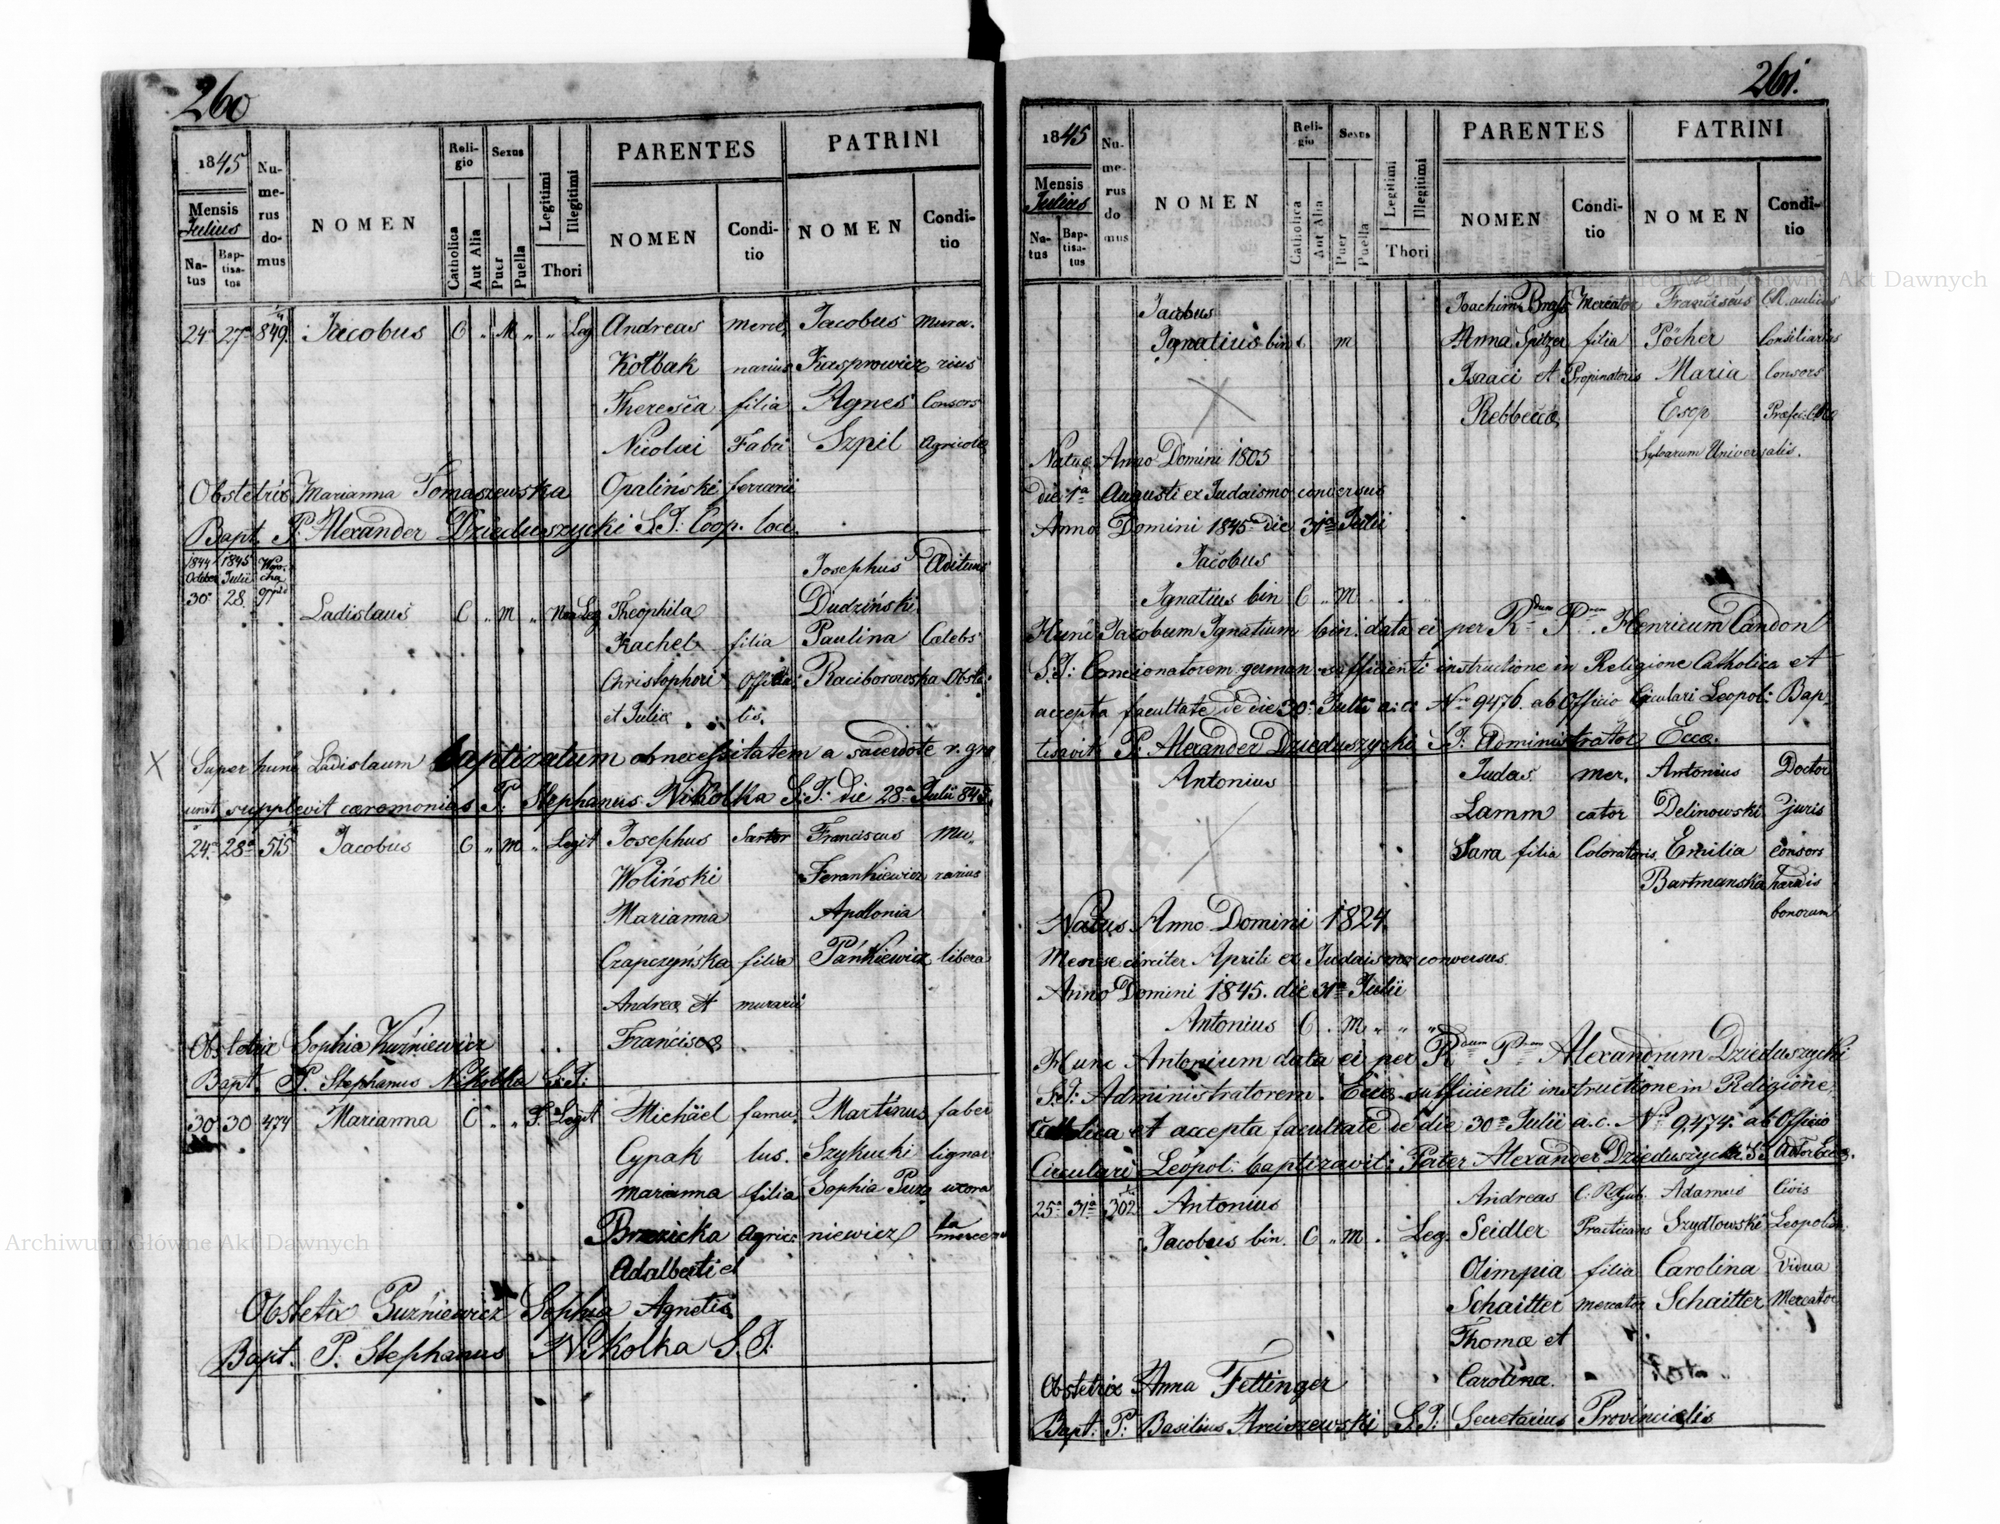 260
1845 Numerus domus NOMEN Religio Sexus Legitimi Illegitimi PARENTES PATRINI
Mensis Julius Catholica Aut Alia Puer Puella Thori NOMEN Conditio NOMEN Conditio
Natus Baptisatus
24a 27a 849 Jacobus C " M " " Leg Andreas merce Jacobus mura.
Kołbak narius Kasprowicz rius
Theresia filia Agnes Consors
Nicolai Fabri Szpil agricola
Obstetrix Marianna Tomaszewska Opaliński ferrarii
Bapt. P. Alexander Dzieduszycki S.J: Coop. loci.
1844 1845 Josephus Aedituus
October Julii
30a 28 97 Dudziński
Ladislaus C " m " Non Leg Theophila
Rachel filia Paulina Caelebs
Christophori Offitia: Raciborowska Obste:
et Julia lis.
X Super hunc Ladislaum baptizatum ob necessitatem a sacerdote r. gra
unit supplevit caeremonias P. Stephanus Nikolka S.J: die 28a Julii 845.
24a 28a 515 Jacobus C " m " Legit Josephus Sartor Franciscus mu„
Woliński Ferankiewicz rarius
Marianna Apollonia
Czapczyńska filia Pańkiewicz libera
Andreae et murarii
Franciscae
Obstetrix Sophia Kuźniewicz
Bapt. P. Stephanus Nikolka S.J:
30 30 474 Marianna C " " F. Legit Michäel famu„ Martinus faber
Cypak lus. Szykucki lignar:
Marianna filia Sophia Puza uxora
Brzezicka Agric: niewicz
Adalberti et
Obstetix Puźniewicz Sophia Agnetis
Bapt. P. Stephanus Nikolka S.J.
261.
1845 Numerus domus NOMEN Religio Sexus Legitimi Illegitimi PARENTES PATRINI
Mensis Julius Catholica Aut Alia Puer Puella Thori NOMEN Conditio NOMEN Conditio
Natus Baptisatus
Jacobus Joachim Brass Mercator Franciscus C.R. aulicus
Ignatius bin C m Anna Spitzer filia Pöcher Consiliarius
Isaaci et Propinatoris Maria Consors
Rebbecca Esop
Sylvarum Universalis.
Natus Anno Domini 1805
die 1a Augusti ex Judaismo conversus
Anno Domini 1845a die 31a Julii
Jacobus
Ignatius bin C " M " " "
Hunc Jacobum Ignatium bin: data ei per Rdum Pem Henricum Candon
S.J: Concionatorem german: sufficienti instructione in Religione Catholica et
accepta facultate de die 30a Julii a.c: Nro 9476. ab Officio Circulari Leopol: Bap„
tisavit P. Alexander Dzieduszycki S.J: Administrator Eccae.
Antonius Judas mer„ Antonius Doctor
Lamm cator Delinowski juris
Sara filia Coloratoris Emilia Consors
Bartmanska haredis
bonorum
Natus Anno Domini 1824
Mense circiter Aprili ex Judaismo conversus
Anno Domini 1845. die 31a Julii
Antonius C . M " " "
Hunc Antonium data ei per Rdum Pem Alexandrum Dzieduszycki
S.J: Administratorem Eccae sufficienti instructione in Religione
Catholica et accepta facultate de die 30a Julii a.c. Nro 9474. ab Officio
Circulari Leopol: baptizavit: Pater Alexander Dzieduszycki S.J. Adtor Eccae.
25a 31a 302 Antonius Andreas C: R: Gub. Adamus Civis
Jacobus bin. C " M . Leg. Seidler Practicans Szydłowski Leopolien:
Olimpia filia Carolina Vidua
Schaitter mercator Schaitter Mercator
Thomae et
Carolinae.
Obstetrix Anna Fettinger
Bapt: P: Basilius Arciszewski S.J: Secretarius Provincialis
Archiwum Główne Akt Dawnych
Archiwum Główne Akt Dawnych